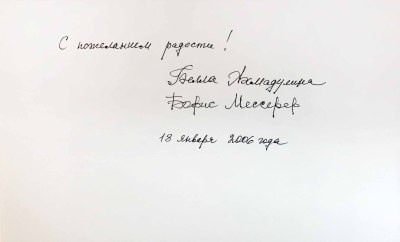 С пожеланием радости!
Белла Ахмадулина
Борис Мессерер
18 января 2006 года